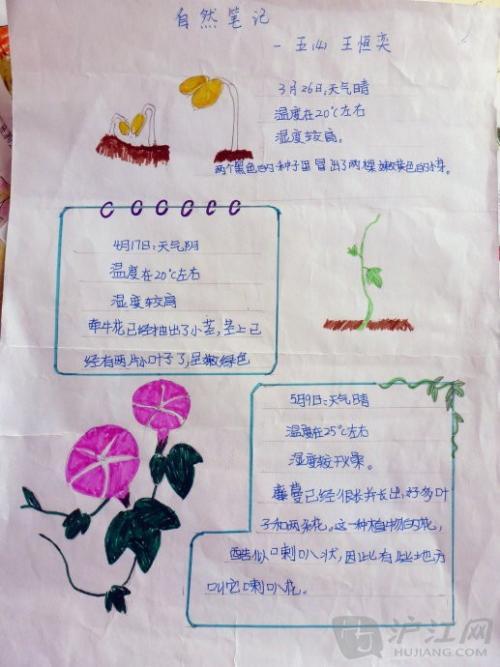 自然笔记
-五(4) 王恒奕
3月26日:天气晴
温度在20℃左右
湿度较高。
两个黑色的种子里冒出了两棵嫩黄色的小芽。
4月17日:天气阴
温度在20℃左右
湿度较高
牵牛花已经抽出了小茎,茎上已
经有两片小叶子了,呈嫩绿色
5月9日:天气晴
温度在25℃左右
湿度较干燥。
藤蔓已经很长并长出好多叶
子和两朵花。这一种植物的花,
酷似喇叭状,因此有些地方
叫它喇叭花。
沪江网
HUJIANG.COM